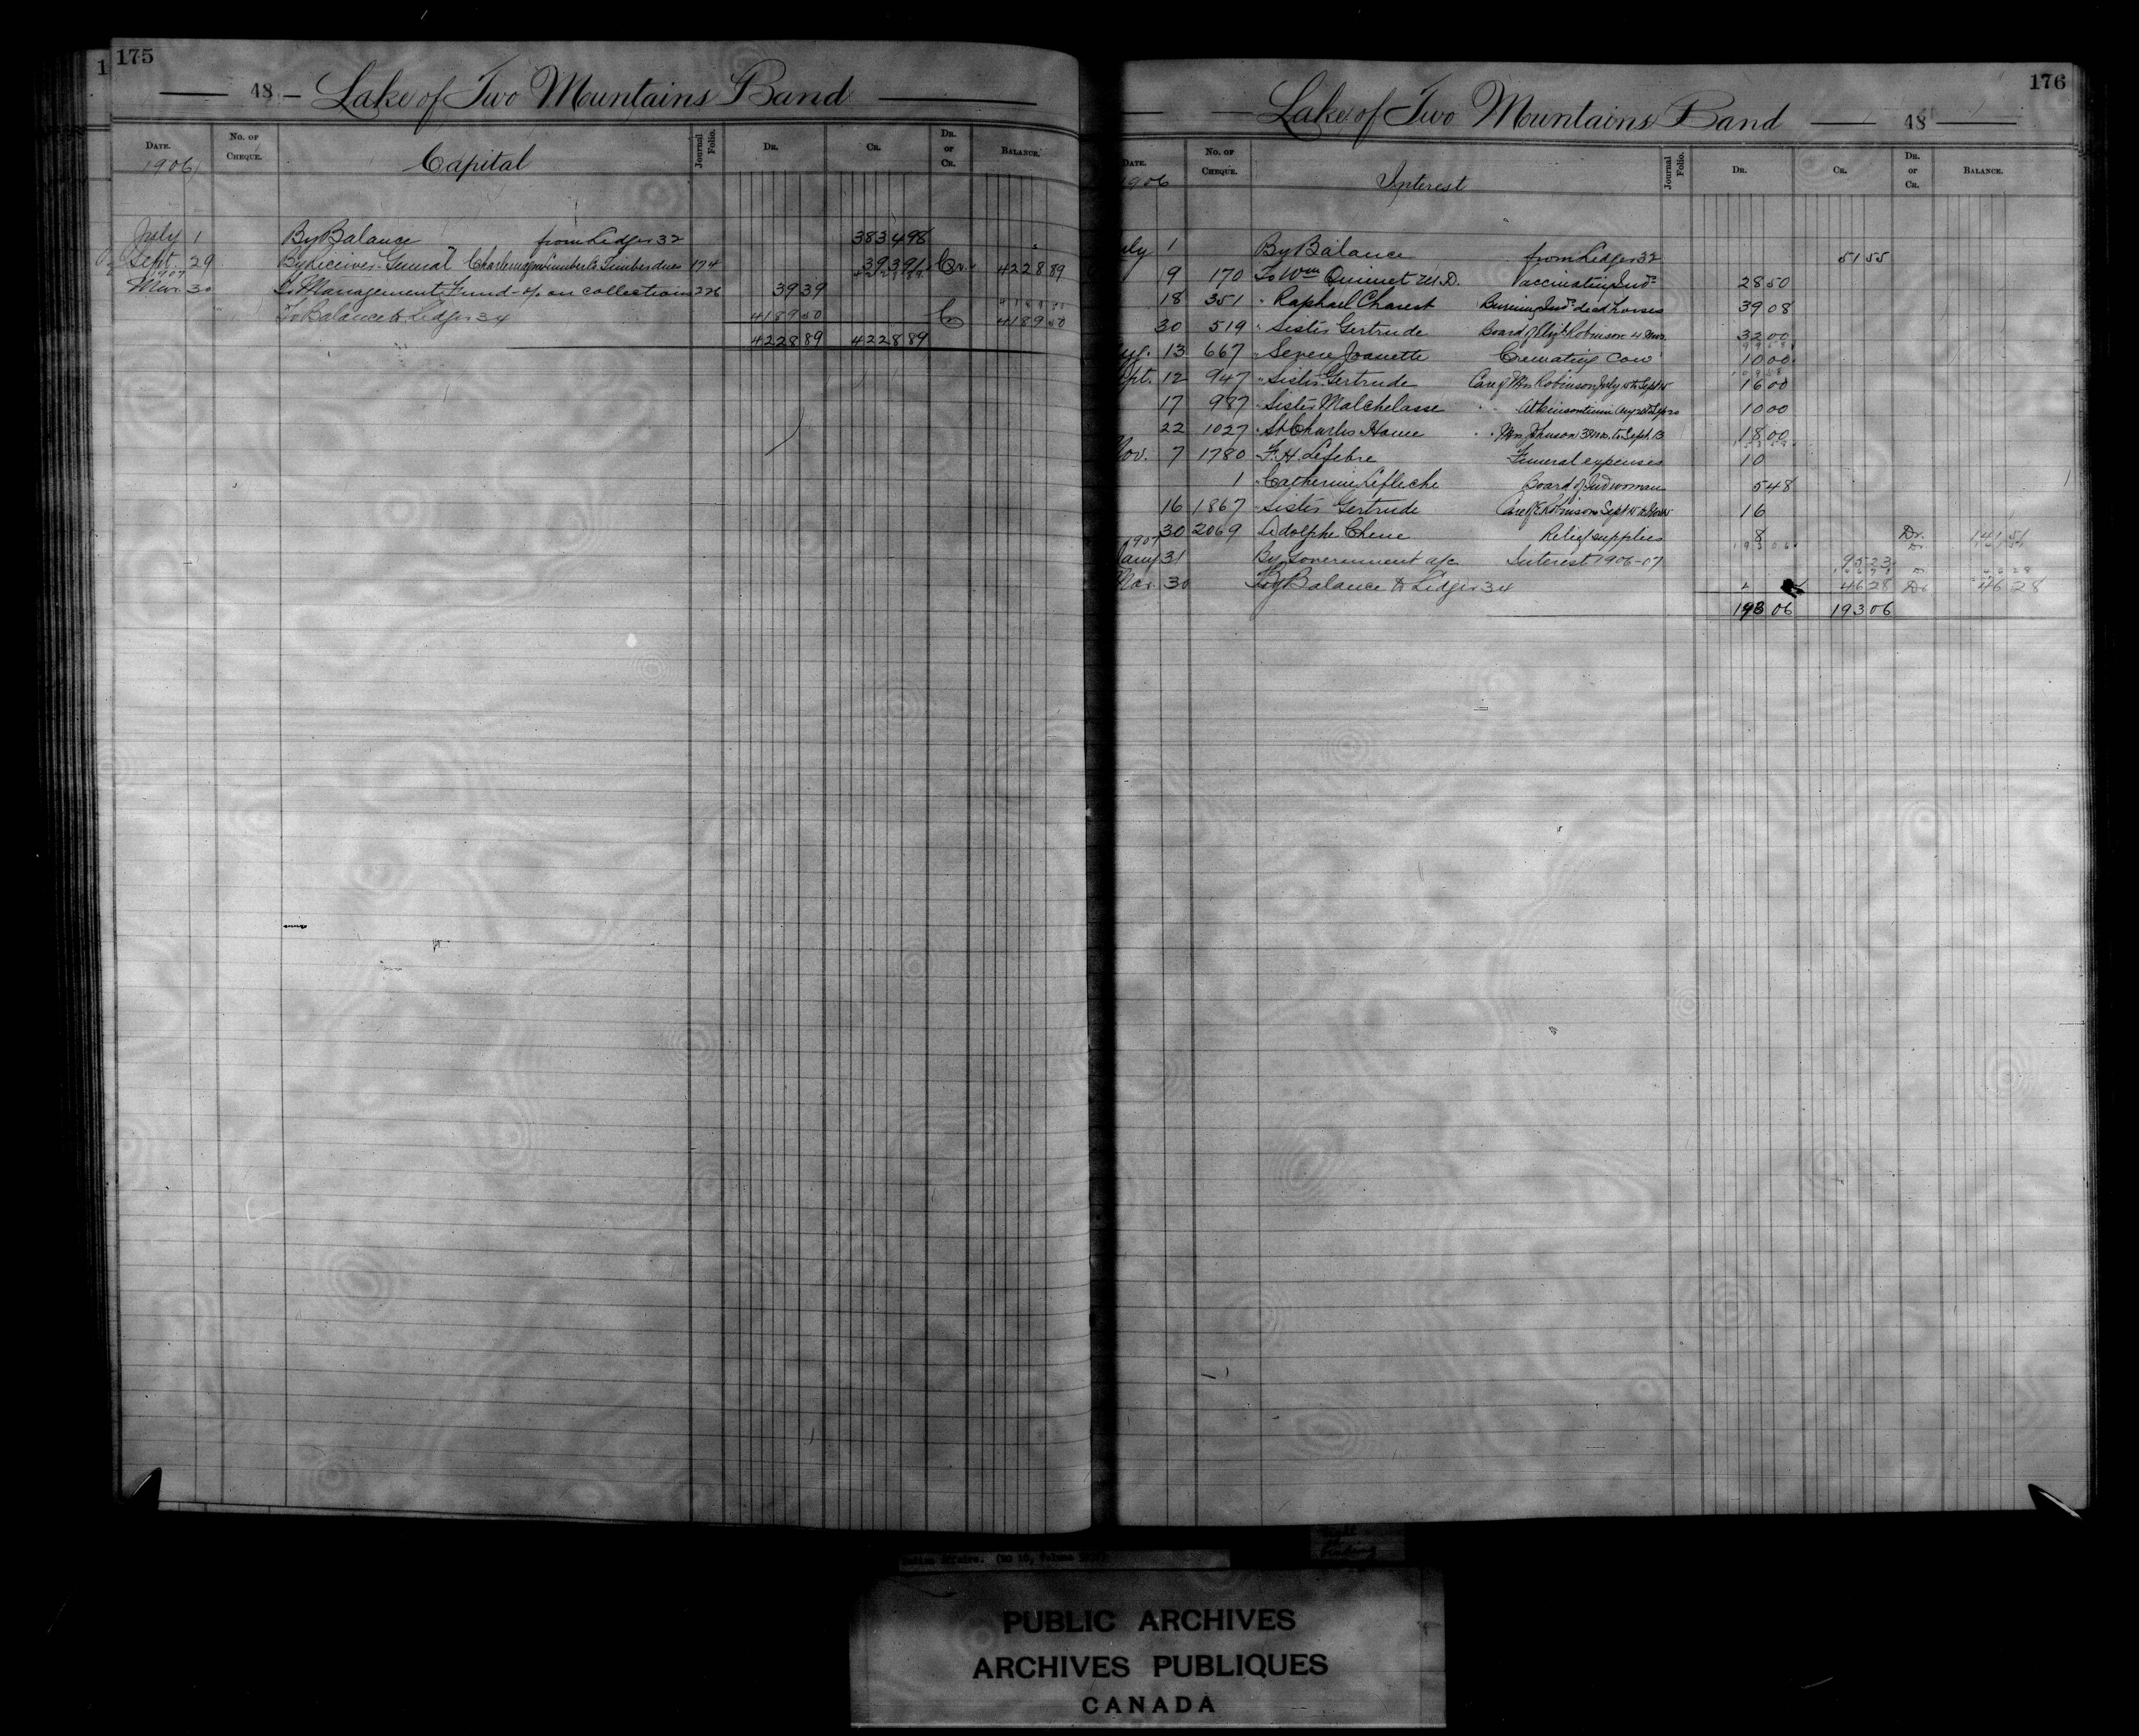 175
48 – Lake of Two Mountains Band
DATE. No. of Cheque. Capital Journal Folio. DR. CR. DR. or CR. BALANCE.
1906
July 1 By Balance from Ledger 32 3834 98
Sept. 29 By Receiver General Timber dues 174 393 91 Cr. 4228 89
1907
Mar. 30 To Management Fund - % on collections 226 39 39
" To Balance to Ledger 34 4189 50 Cr 4189 50
4228 89 4228 89
176
Lake of Two Mountains Band 48
DATE. No. of Cheque. Interest Journal Folio. DR. CR. DR. or CR. BALANCE.
1906
July 1 By Balance from Ledger 32 51 55
9 170 To Wm Ouimet M.D. Vaccinating Inds 28 50
18 351 " Raphael Charest Burning Inds dead horses 39 08
30 519 " Sister Gertrude Board of Robinson 4 mos. 32 00
Aug. 13 667 " Severe Joanette Cremating cow 10 00
Sept. 12 947 " Sister Gertrude Care of Mrs Robinson July to Sept 16 00
17 987 " Sister Malchelasse 10 00
22 1027 " St Charles Home " " Mrs Johnson 3 mos. to Sept. 13 18 00
Nov. 7 1780 F. H. Lefebre Funeral expenses 10
1 " Catherine Lefleche Board of Ind woman 5 48
16 1867 " Sister Gertrude Care of E Robinson Sept to Nov 16
30 2069 Adolphe Chene Relief supplies 8 Dr. 141 51
1907
Jany 31 By Government a/c Interest 1906-07 95 23
Mar. 30 By Balance to Ledger 34 46 28 Dr 46 28
193 06 193 06
Indian Affairs. (RG 10, Volume
PUBLIC ARCHIVES
ARCHIVES PUBLIQUES
CANADA